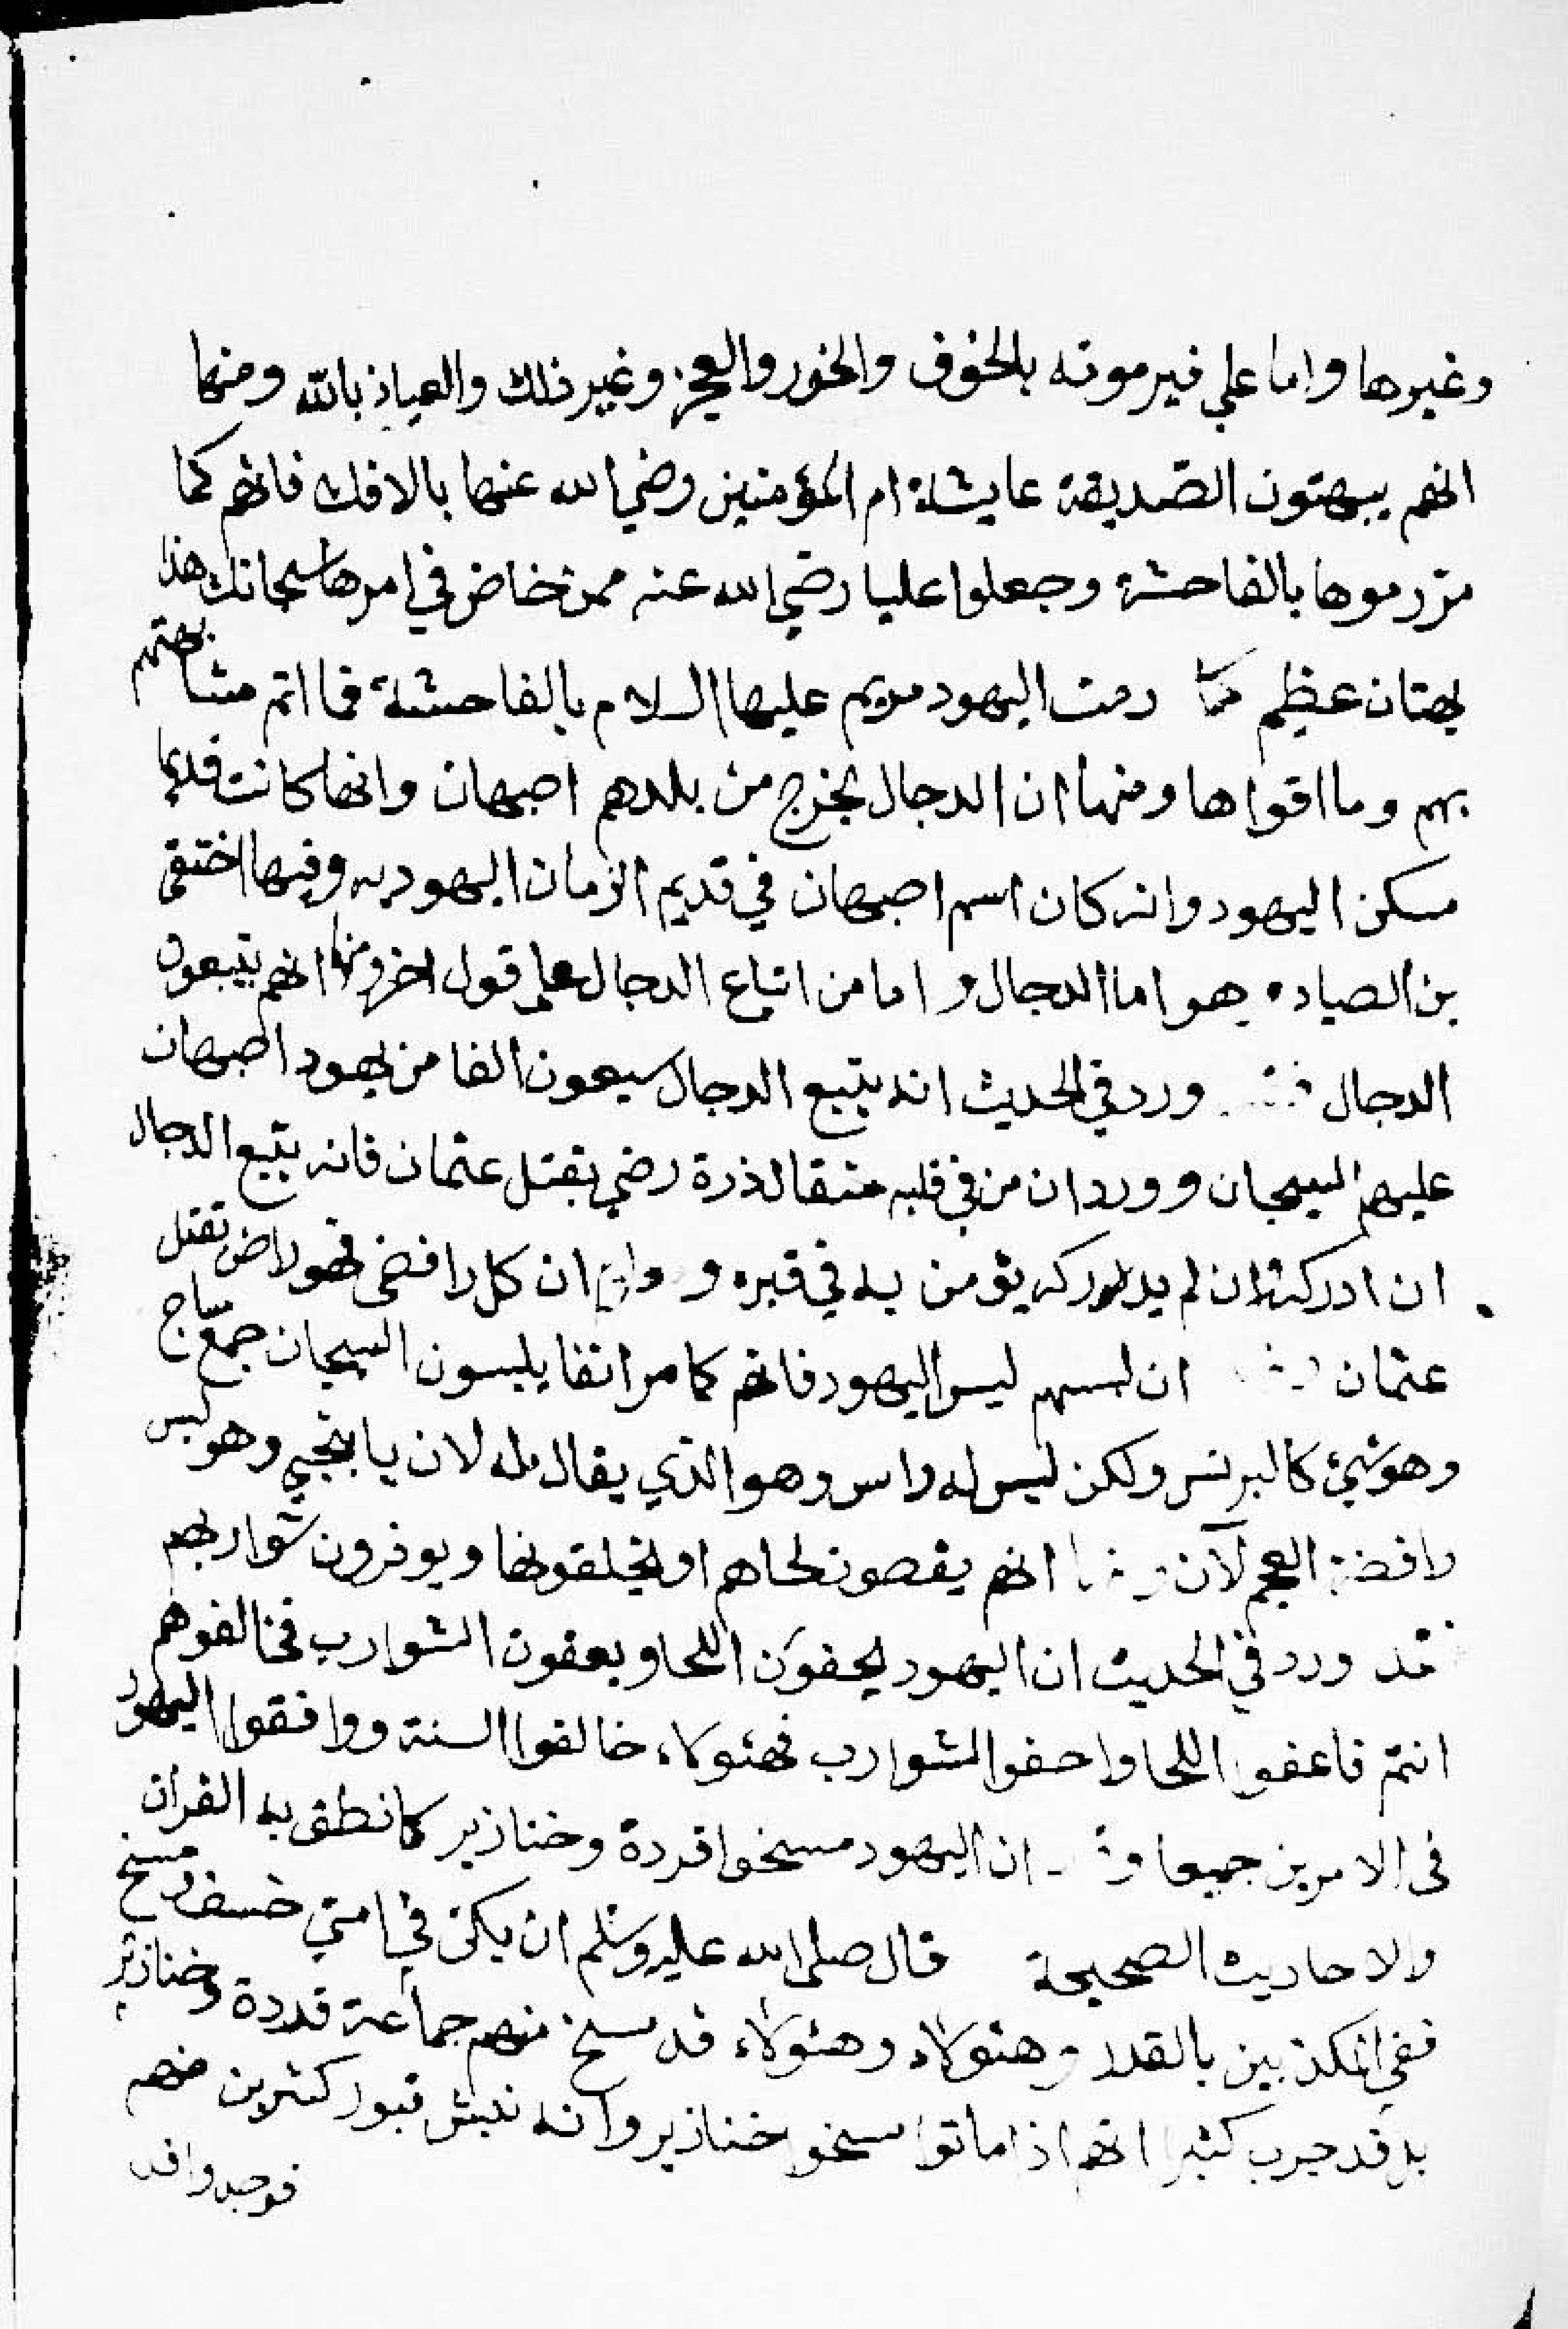 وغيرها واما علي فيرمونه بالخوف والخور والعجز وغير ذلك والعياذ بالله ومنها
انهم يبهتون الصّديقة عايشة ام المؤمنين رضي الله عنها بالافك فانهم كما
مرّ رموها بالفاحشة وجعلوا عليا رضي الله عنه ممن خاض في امرها سبحانك هذا
بهتان عظيم كما رمت اليهود مريم عليها السلام بالفاحشة فما اتم مشابهتهم
بهم وما اقواها ومنها ان الدجال يخرج من بلدهم اصبهان وانها كانت قديما
مسكن اليهود وانه كان اسم اصبهان في قديم الزمان اليهوديه وفيها اختفى
بن الصياد هو اما الدجال واما من اتباع الدجال على قول اخر ومنها انهم يتبعون
الدجال ورد في الحديث انه يتبع الدجال سبعون الفا من يهود اصبهان
عليهم السيجان وورد ان من في قلبه مثقال ذرة رضي بقتل عثمان فانه يتبع الدجال
ان ادركه وان لم يدركه يؤمن به في قبره و ان كل رافضى فهو راض بقتل
عثمان ان لبسهم لبس اليهود فانهم كما مر انفا يلبسون السيجان جمع ساج
وهو شيئ كالبرنس ولكن ليس له راس وهو الذي يقال له الان يابنجي وهو لبس
رافضة العجم لآن انهم يقصون لحاهم او يحلقونها ويوفرون شواربهم
قد ورد في الحديث ان اليهود يحفون اللحا ويعفون الشوارب فخالفوهم
انتم فاعفوا اللحا واحفوا الشوارب فهئولاء خالفوا السنة ووافقوا اليهود
فى الامرين جميعا ان اليهود مسخوا قردة وخنازير كما نطق به القرآن
والاحاديث الصحيحة قال صلى الله عليه وسلم ان يكن في امتي خسف ومسخ
ففي المكذبين بالقدر وهئولاء وهئولاء قد مسخ منهم جماعة قردة وخنازير
بل قد جرب كثيرا انهم اذا ماتوا مسخوا خنازير وانه نبش قبور كثيرين منهم
فوجدوا قد